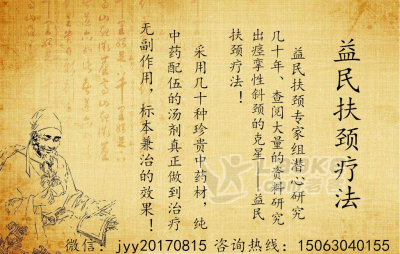 益民扶颈疗法
益民扶颈专家组潜心研究
几十年、查阅大量的资料研究
出痉挛性斜颈的克星，益民
扶颈疗法！
采用几十种珍贵中药材，纯
中药配伍的汤剂真正做到治疗
无副作用，标本兼治的效果！
微信： jyy20170815 咨询热线：15063040155